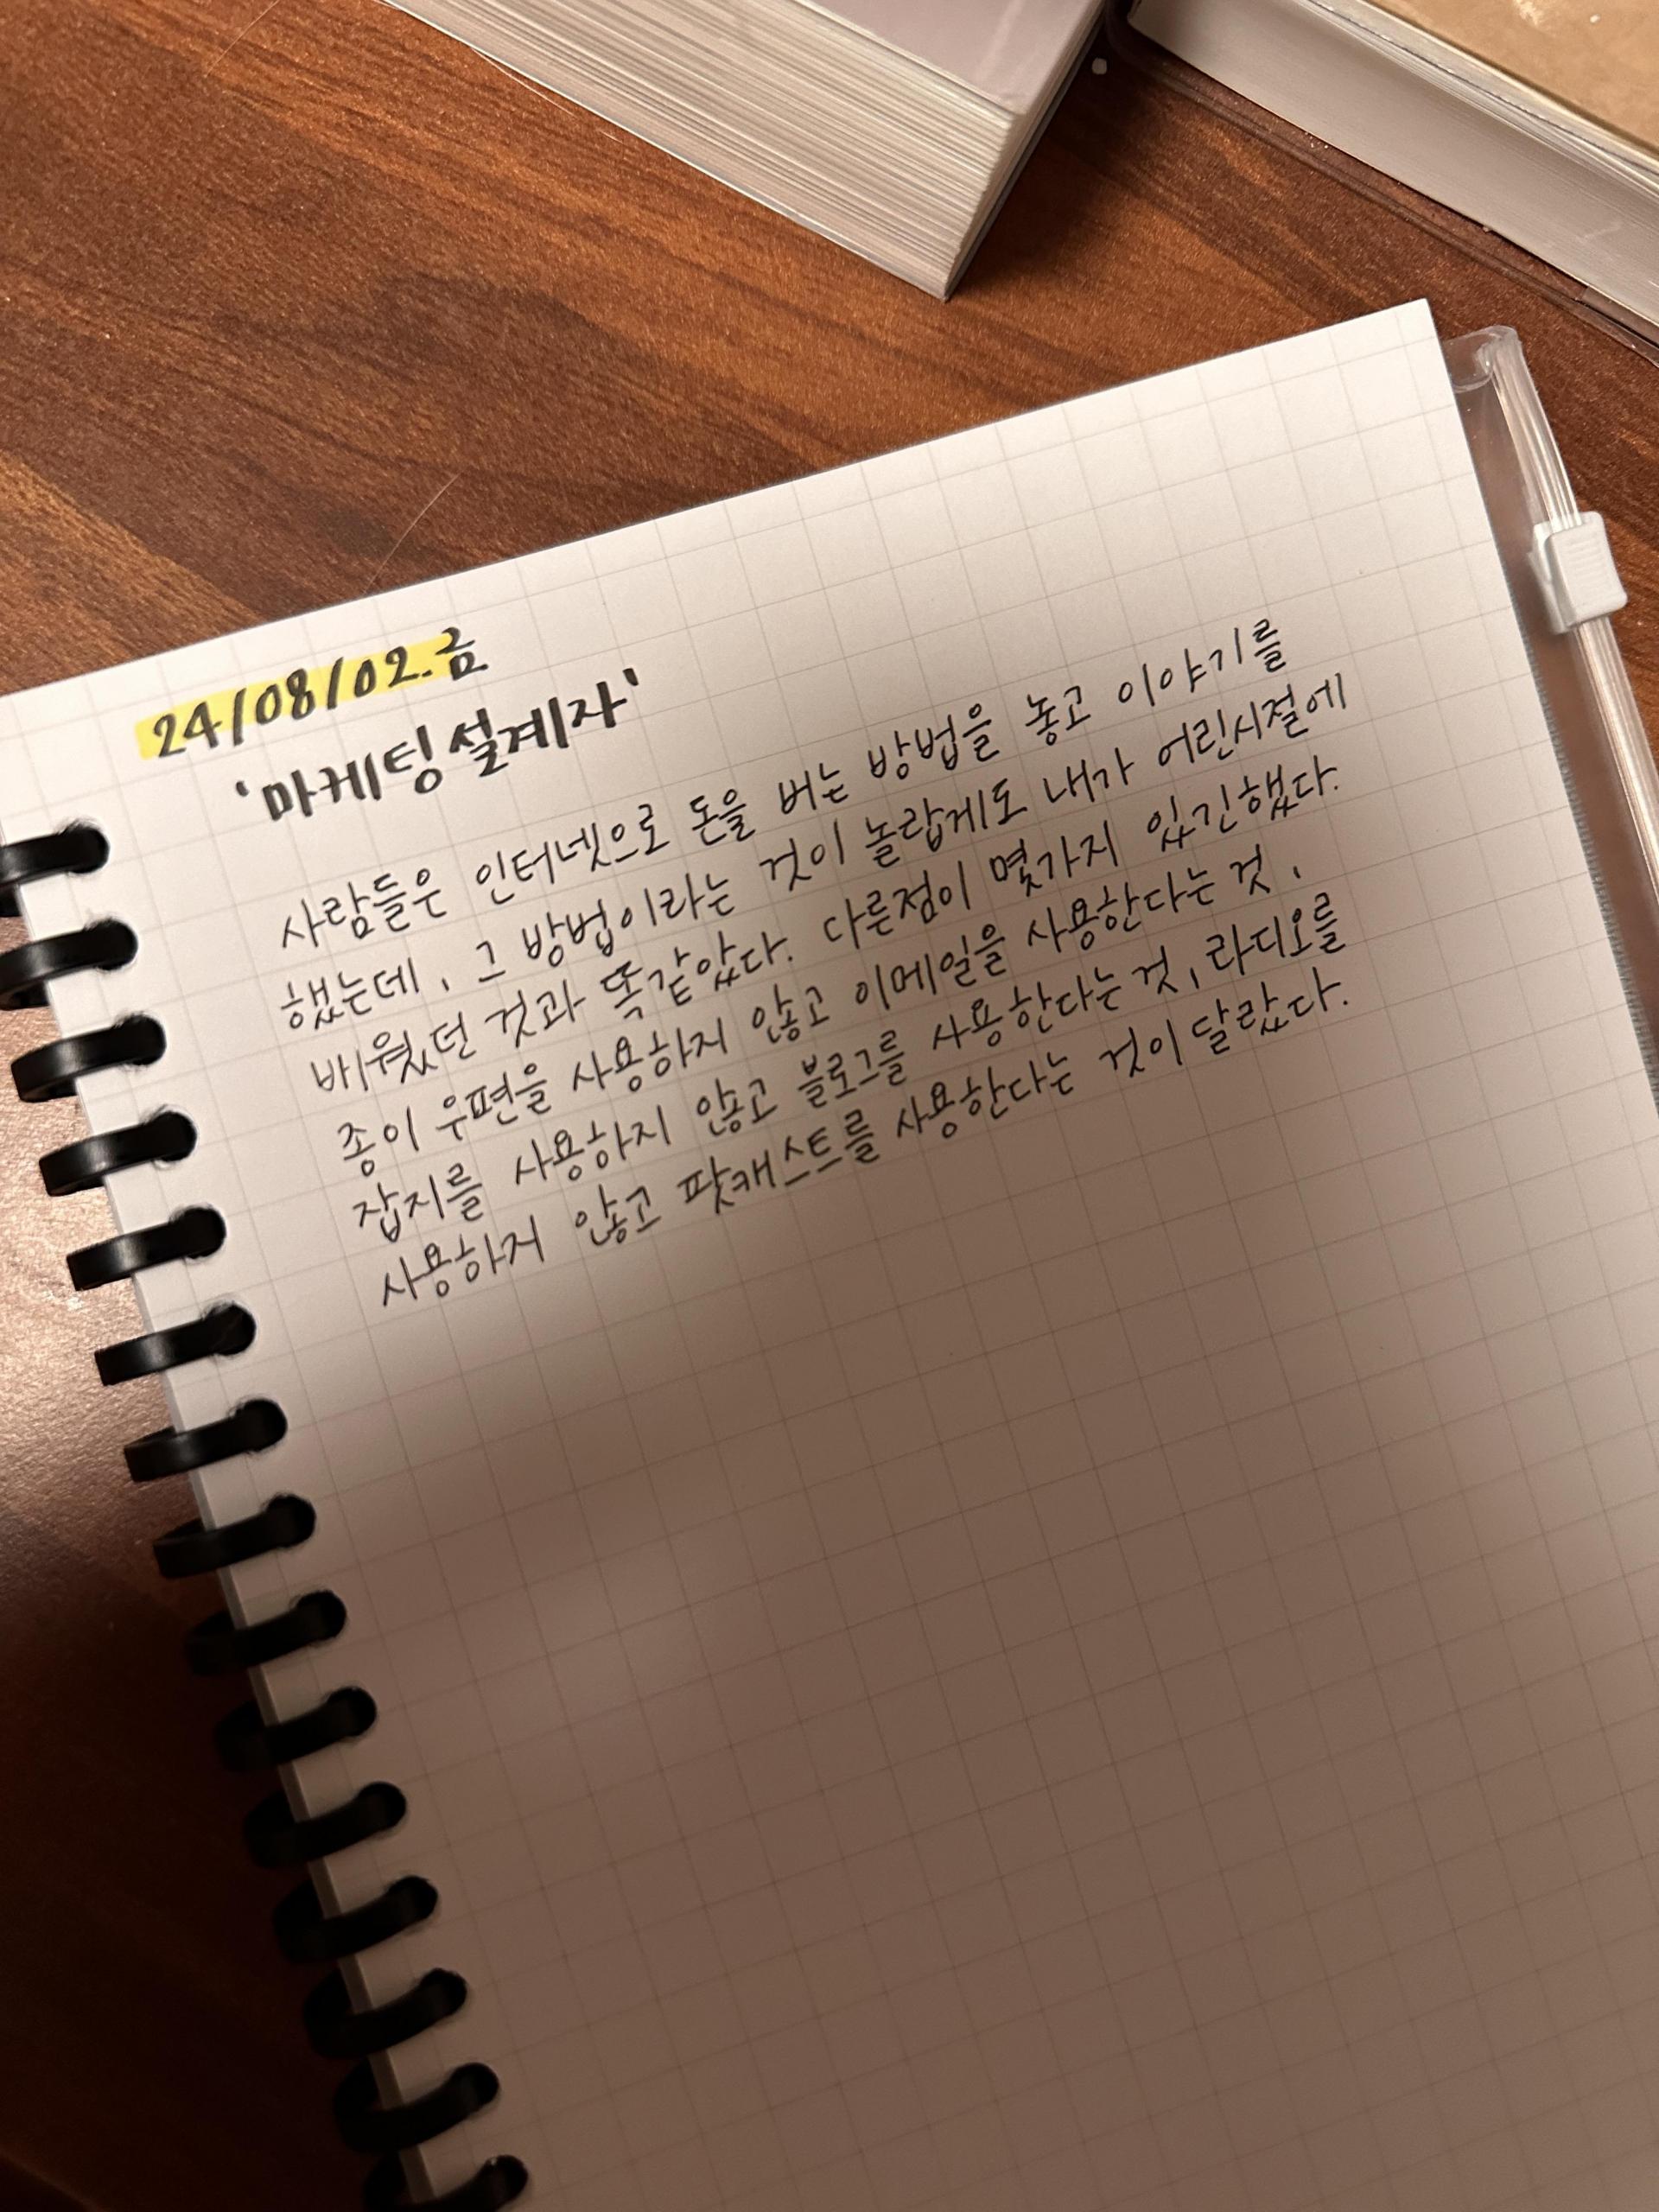 24/08/02.금
'마케팅설계자'
사람들은 인터넷으로 돈을 버는 방법을 놓고 이야기를
했는데, 그 방법이라는 것이 놀랍게도 내가 어린시절에
배웠던 것과 똑같았다. 다른점이 몇가지 있긴했다.
종이 우편을 사용하지 않고 이메일을 사용한다는 것,
잡지를 사용하지 않고 블로그를 사용한다는 것, 라디오를
사용하지 않고 팟캐스트를 사용한다는 것이 달랐다.